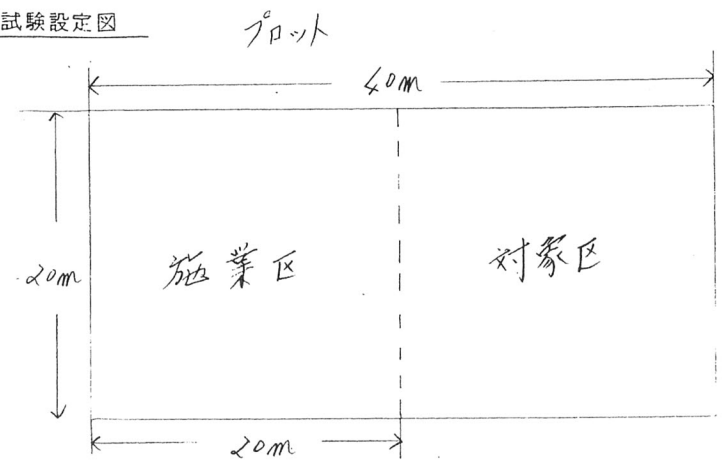 試験設定図
プロット
40m
20m
施業区
対象区
20m